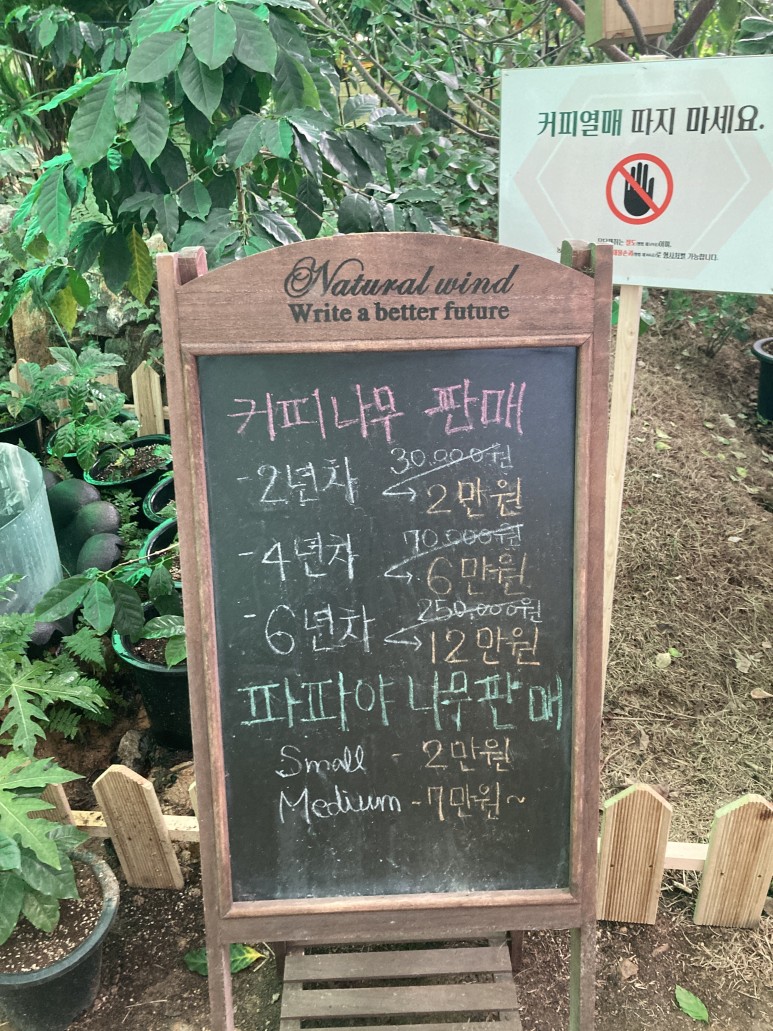 커피열매 따지 마세요.
Natural wind
Write a better future
커피나무 판매
- 2년차 30.000원
→ 2만원
- 4년차 70.000원
→ 6만원
- 6년차 250.000원
→ 12만원
파파야 나무 판매
Small - 2만원
Medium - 7만원~